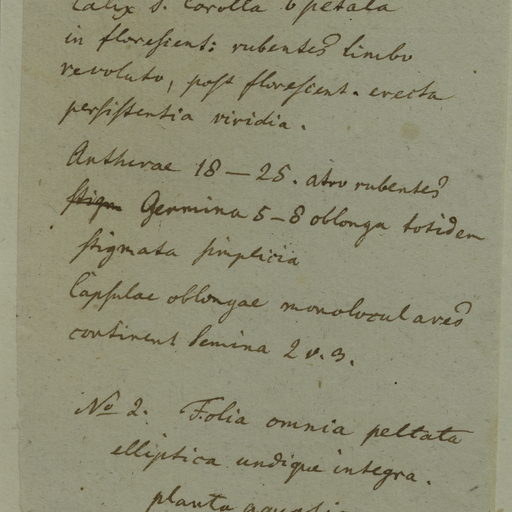 Calix s. Corolla 6 petala
in florescient: rubentes limbo
revoluto, post florescient. erecta
persistentia viridia.
Antherae 18 – 25. atro rubentes
stigm Germina 5–8 oblonga totidem
stigmata simplicia
Capsulae oblongae monoloculares
continent Semina 2 v. 3.
No 2. Folia omnia peltata
elliptica undique integra.
planta aquatic